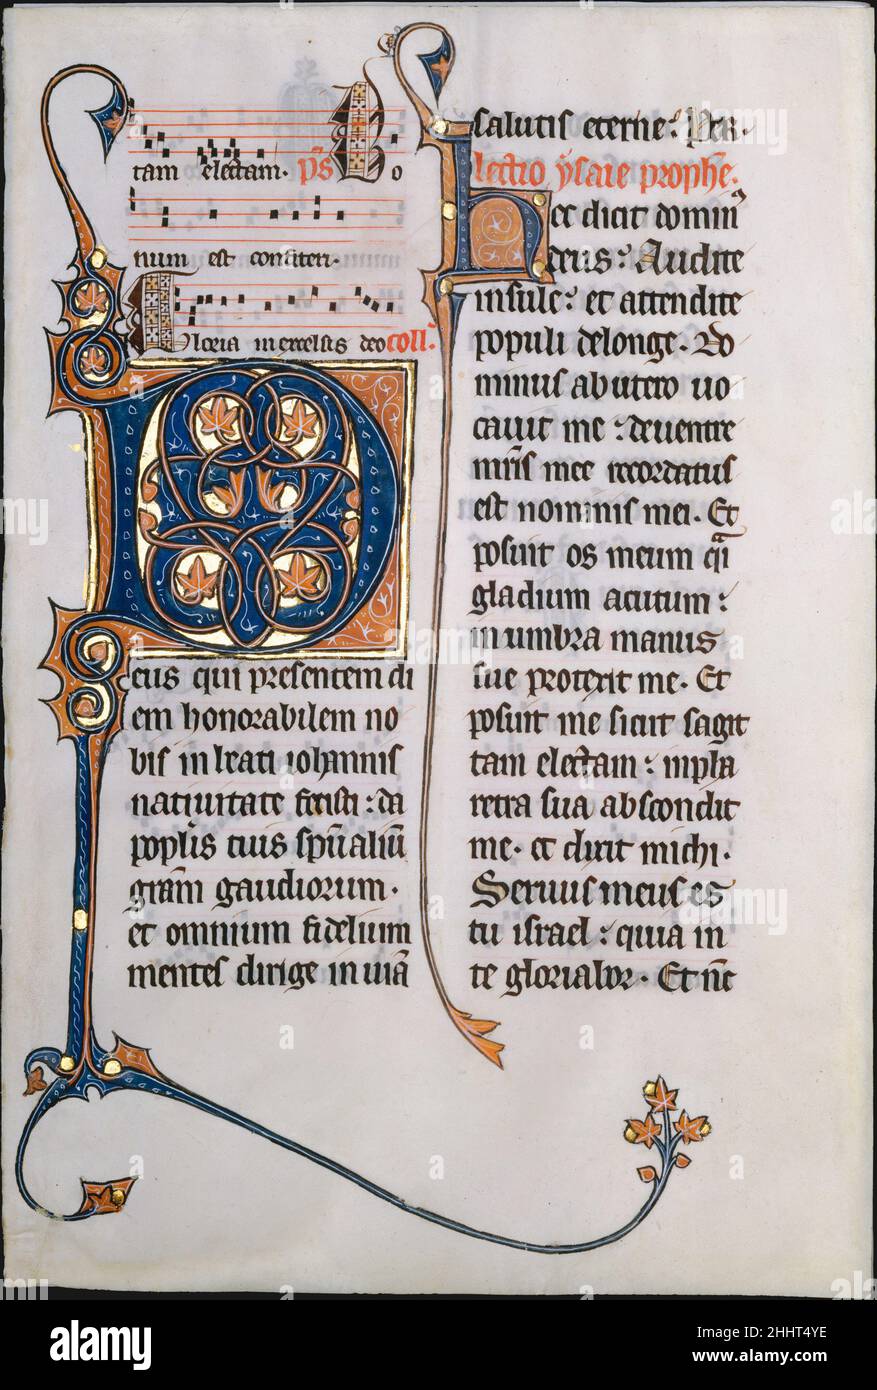 tam electam. ps Bo
num est confiteri.
Gloria in excelsis deo coll'.
Deus qui presentem di
em honorabilem no
bis in beati iohannis
natiuitate fecisti : da
popl'is tuis sp̄ualiū
gr̄am gaudiorum.
et omnium fidelium
mentes dirige in uiā
salutis eterne : Per.
lectio ysaie prophe.
Hec dicit domin'
deus : Audite
insule : et attendite
populi de longe. Do
minus ab utero uo
cauit me : de uentre
mr̄is mee recordatus
est nominis mei. Et
posuit os meum q̄i
gladium acutum :
in umbra manus
sue protexit me. Et
posuit me sicut sagit
tam electam : in pha
retra sua abscondit
me. et dixit michi.
Seruus meus es
tu israel : quia in
te gloriabor. Et nc̄
alamy
Image ID: 2HHT4YE
www.alamy.com